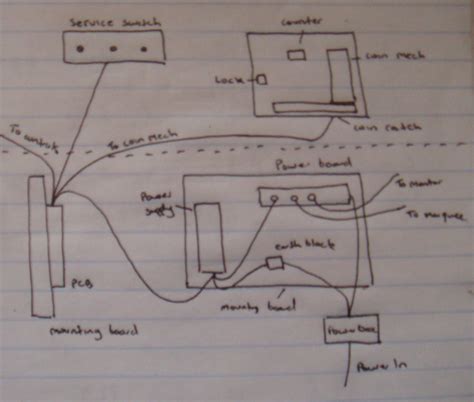 Service switch
counter
coin mech
Lock
coin catch
To controls
To coin mech
Power board
Power
supply
To monitor
To marquee
earth block
PCB
mounting board
mounting board
Power box
Power In